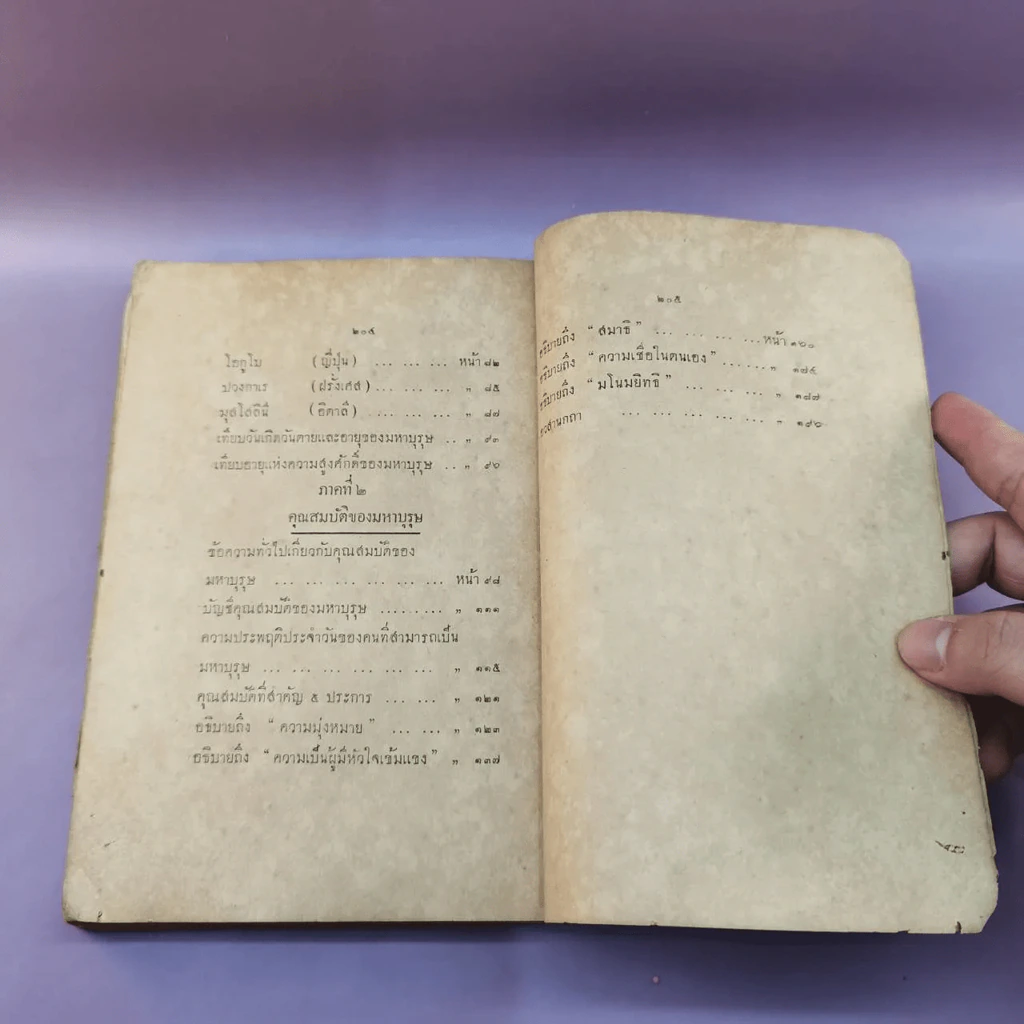 ๒๐๔
โยกูโม (ญี่ปุ่น) ... ... ... หน้า ๘๒
ปวงกาเร (ฝรั่งเศส) ... ... ... „ ๘๕
มุสโสลินี (อิตาลี) ... ... ... „ ๘๗
เทียบวันเกิดวันตายและอายุของมหาบุรุษ .. „ ๙๓
เทียบอายุแห่งความสูงศักดิ์ของมหาบุรุษ .. „ ๙๖
ภาคที่ ๒
คุณสมบัติของมหาบุรุษ
ข้อความทั่วไปเกี่ยวกับคุณสมบัติของ
มหาบุรุษ ... ... ... ... ... ... หน้า ๙๘
บัญชีคุณสมบัติของมหาบุรุษ ......... „ ๑๑๑
ความประพฤติประจำวันของคนที่สามารถเป็น
มหาบุรุษ ... ... ... ... ... ... „ ๑๑๕
คุณสมบัติที่สำคัญ ๕ ประการ ... ... „ ๑๒๑
อธิบายถึง “ ความมุ่งหมาย ” ... ... „ ๑๒๓
อธิบายถึง “ ความเป็นผู้มีหัวใจเข้มแขง ” „ ๑๓๗
๒๐๕
อธิบายถึง “ สมาธิ ” ... ... ... ...หน้า ๑๖๐
อธิบายถึง “ ความเชื่อในตนเอง ” ...... „
อธิบายถึง “ มโนมยิทธิ ” ... ... ... „ ๑๘๗
... ... ... ... ... „